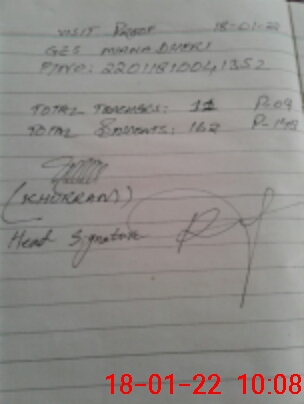 VISIT PROOF 18-01-22
GES MIANA DHERI
F/NO: 22011810041352
TOTAL TEACHERS: 11 P-09
TOTAL STUDENTS: 162
(KHURRAM)
Head Signature
18-01-22 10:08